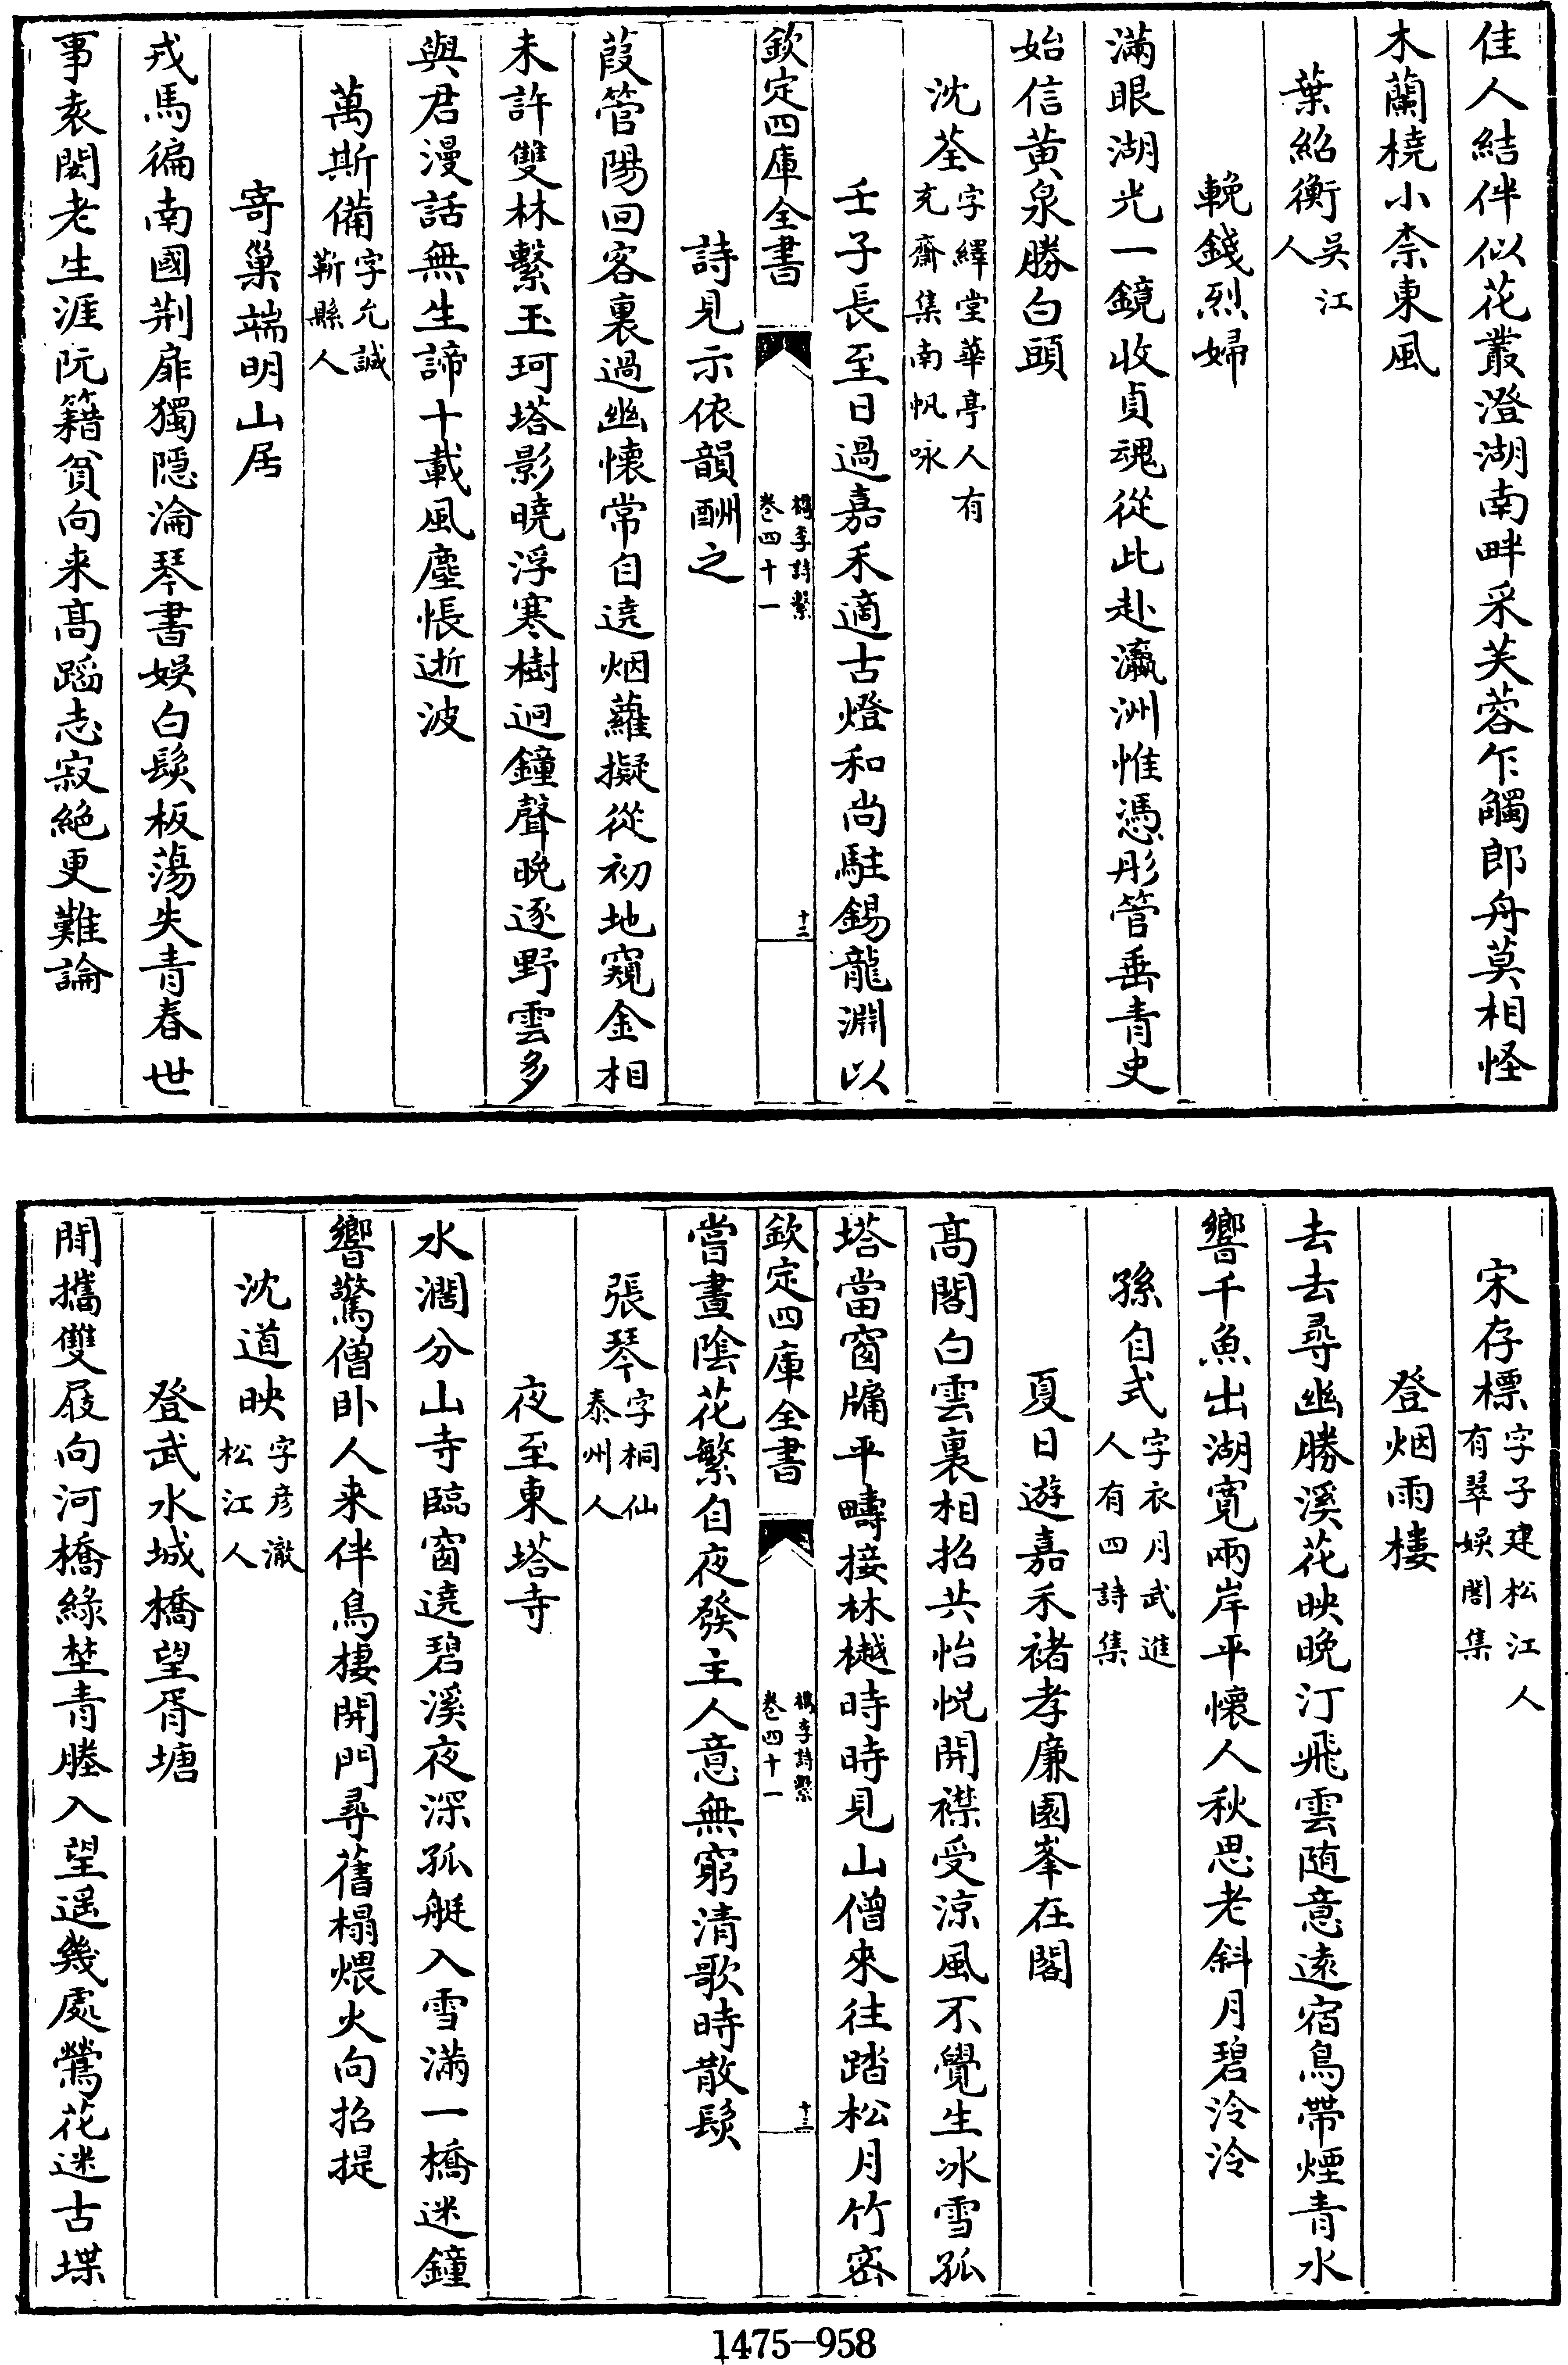 佳人結伴似花叢澄湖南畔采芙蓉乍觸郎舟莫相怪
木蘭橈小柰東風
葉紹衡吳江人
輓錢烈婦
滿眼湖光一鏡收貞魂從此赴瀛洲惟憑彤管垂青史
始信黄泉勝白頭
沈荃字繹堂華亭人有充齋集南帆咏
壬子長至日過嘉禾適古燈和尚駐錫龍淵以
欽定四庫全書
檇李詩繫
卷四十一
十二
詩見示依韻酬之
葭管陽回客裏過幽懷常自遶烟蘿擬從初地窺金相
未許雙林繫玉珂塔影曉浮寒樹迥鐘聲晚逐野雲多
與君漫話無生諦十載風塵悵逝波
萬斯備字允誠鄞縣人
寄巢端明山居
戎馬徧南國荆扉獨隠淪琴書娱白髮板蕩失青春世
事袁閎老生涯阮籍貧向来髙蹈志寂絶更難論
宋存標字子建松江人有翠娱閣集
登烟雨樓
去去尋幽勝溪花映晩汀飛雲随意逺宿鳥帶煙青水
響千魚出湖寛兩岸平懷人秋思老斜月碧泠泠
孫自式字衣月武進人有四詩集
夏日遊嘉禾禇孝廉園峯在閣
髙閣白雲裏相招共怡悦開襟受涼風不覺生冰雪孤
塔當窗牖平疇接林樾時時見山僧來往踏松月竹宻
欽定四庫全書
檇李詩繫
卷四十一
十三
嘗晝陰花繁自夜發主人意無窮清歌時散髮
張琴字桐仙泰州人
夜至東塔寺
水濶分山寺臨窗遶碧溪夜深孤艇入雪滿一橋迷鐘
響驚僧卧人来伴鳥棲開門尋舊榻煨火向招提
沈道映字彦澈松江人
登武水城橋望胥塘
閒攜雙屐向河橋綠埜青塍入望遥幾處鶯花迷古堞
1475-958